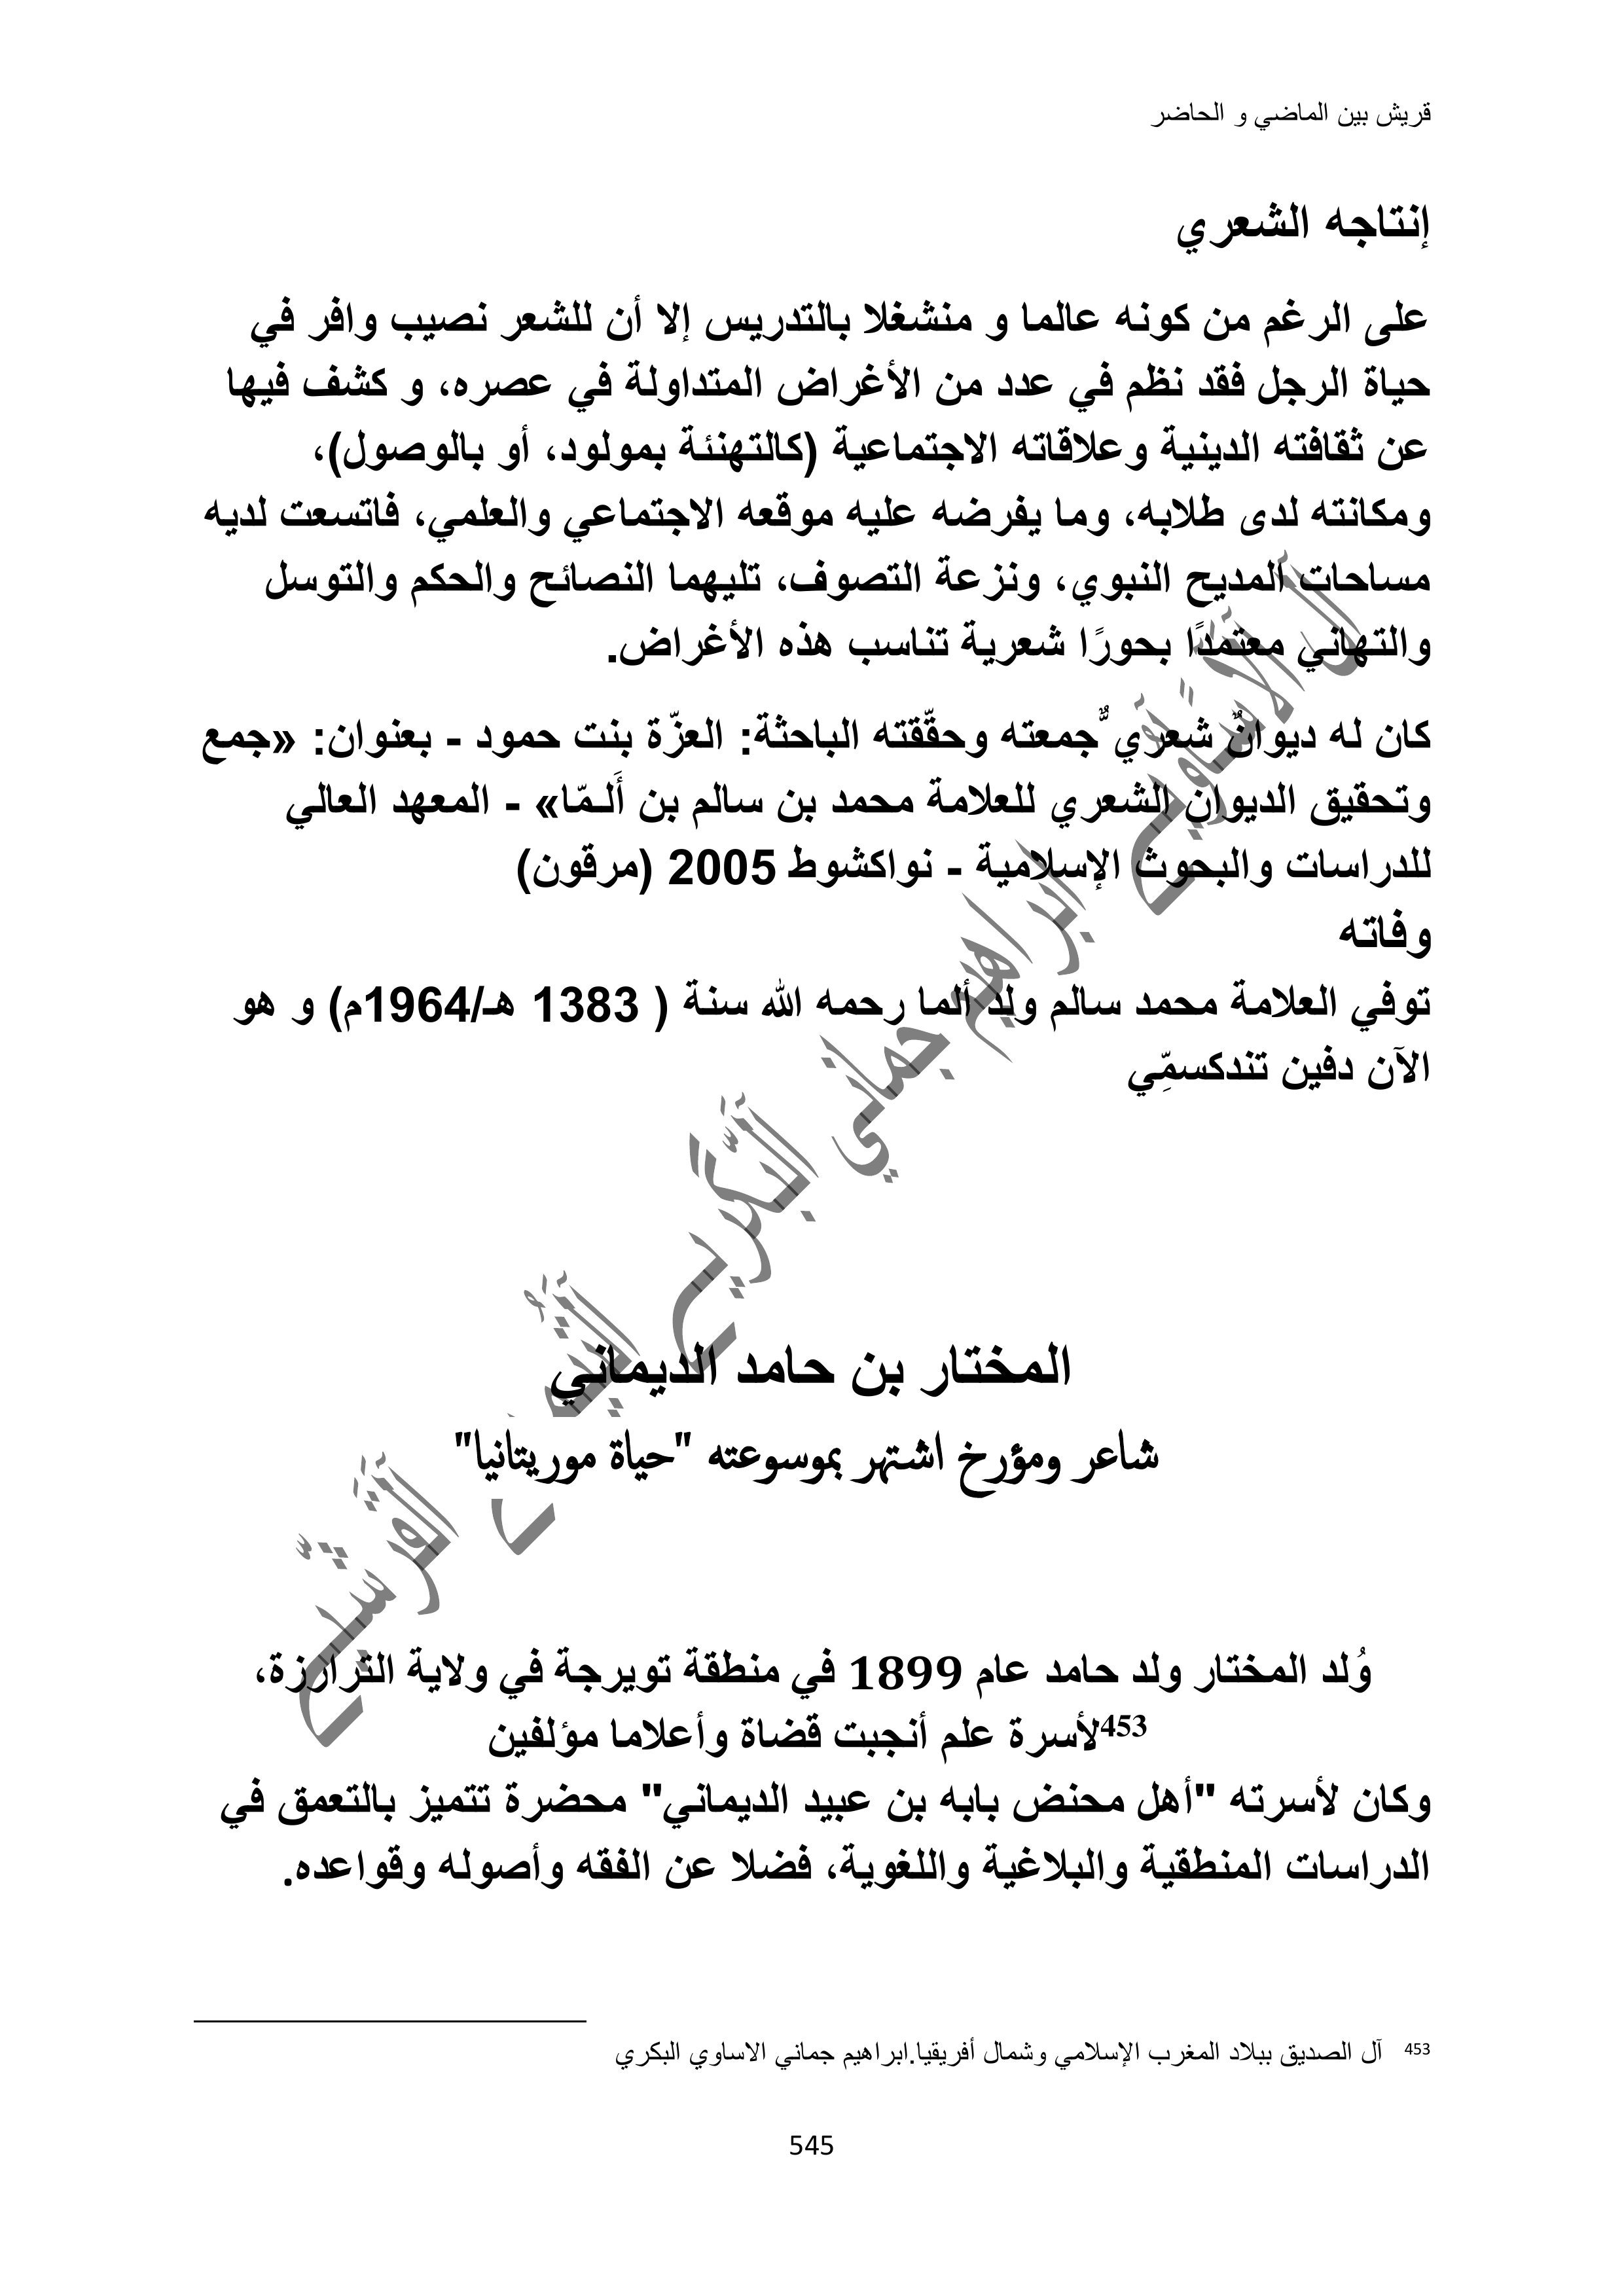 قريش بين الماضي و الحاضر
إنتاجه الشعري
على الرغم من كونه عالما و منشغلا بالتدريس إلا أن للشعر نصيب وافر في
حياة الرجل فقد نظم في عدد من الأغراض المتداولة في عصره، و كشف فيها
عن ثقافته الدينية وعلاقاته الاجتماعية (كالتهنئة بمولود، أو بالوصول)،
ومكانته لدى طلابه، وما يفرضه عليه موقعه الاجتماعي والعلمي، فاتسعت لديه
مساحات المديح النبوي، ونزعة التصوف، تليهما النصائح والحكم والتوسل
والتهاني معتمدًا بحورًا شعرية تناسب هذه الأغراض.
كان له ديوانٌ شعريٌّ جمعته وحقّقته الباحثة: العزّة بنت حمود - بعنوان: «جمع
وتحقيق الديوان الشعري للعلامة محمد بن سالم بن أَلـمّا» - المعهد العالي
للدراسات والبحوث الإسلامية - نواكشوط 2005 (مرقون)
وفاته
توفي العلامة محمد سالم ولد ألما رحمه الله سنة ( 1383 هـ/1964م) و هو
الآن دفين تندكسمِّي
المختار بن حامد الديماني
شاعر ومؤرخ اشتهر بموسوعته "حياة موريتانيا"
وُلد المختار ولد حامد عام 1899 في منطقة تويرجة في ولاية الترارزة،
453لأسرة علم أنجبت قضاة وأعلاما مؤلفين
وكان لأسرته "أهل محنض بابه بن عبيد الديماني" محضرة تتميز بالتعمق في
الدراسات المنطقية والبلاغية واللغوية، فضلا عن الفقه وأصوله وقواعده.
453 آل الصديق ببلاد المغرب الإسلامي وشمال أفريقيا.ابراهيم جماني الاساوي البكري
545